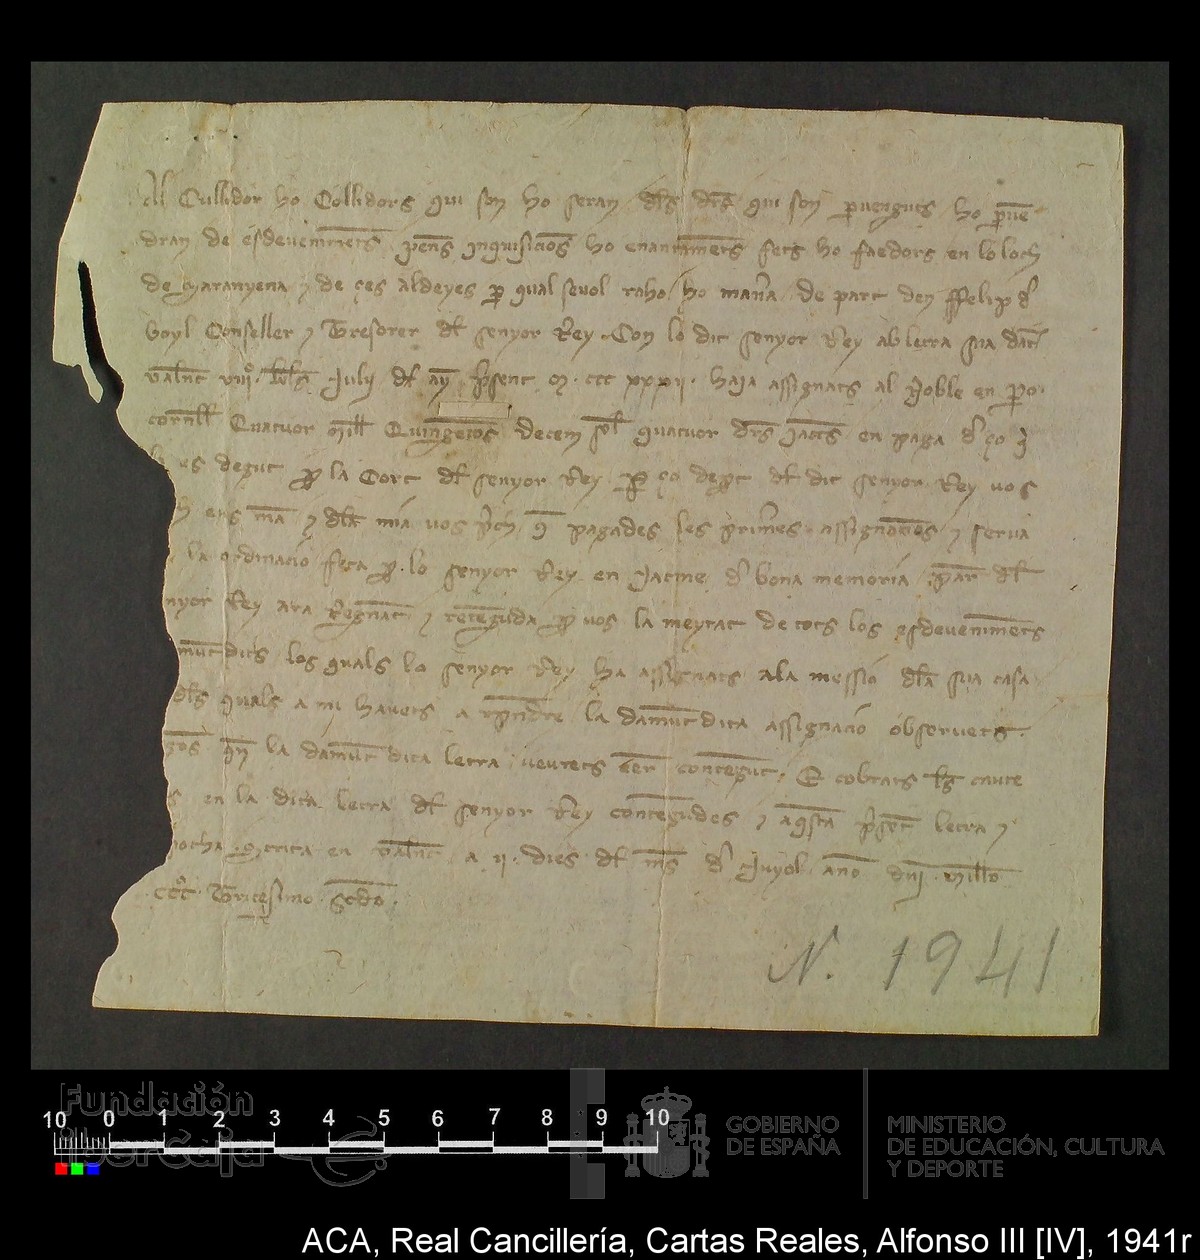 Al Cullidor ho Collidors qui son ho seran dls drs qui son pvenguts ho pve
dran de esdevenimets pens inquisicios ho enantimets fets ho faedors en lo loch
de Maranyena ⁊ de çes aldeyes p qual sevol raho ho mana de part den ffelip d
boyl Conseller ⁊ Tresorer dl senyor Rey Con lo dit senyor Rey ab letra sua dat
valnc viii Julii dl ay psent M ccc xxxii haja assignats al Noble en Po
cornll Quatuor Mill Quingetos decem sol quatuor drs jaccs en paga d ço q
es degut p la Cort dl senyor Rey p ço de pt dl dit senyor Rey vos
ma ⁊ dla mia vos pch q pagades les primes assignacios ⁊ serva
la ordinacio feta p lo senyor Rey en Jacme d bona memoria par dl
nyor Rey ara Regnat ⁊ retenguda p vos la meytat de tots los esdevenimets
mut dits los quals lo senyor Rey ha assignats a la messio dla sua casa
dls quals a mi havets a rpndre la damut dita assignacio observets
la damut dita letra veurets eer contegut E cobrats
en la dita letra dl senyor Rey contegudes ⁊ aqsta pset letra ⁊
pocha scrita en valnc a ii dies dl mes d Juyol ano dni Millo
ccc Tricesimo scdo
N. 1941
Fundación
iberCaja
10 0 1 2 3 4 5 6 7 8 9 10
GOBIERNO
DE ESPAÑA
MINISTERIO
DE EDUCACIÓN, CULTURA
Y DEPORTE
ACA, Real Cancillería, Cartas Reales, Alfonso III [IV], 1941r